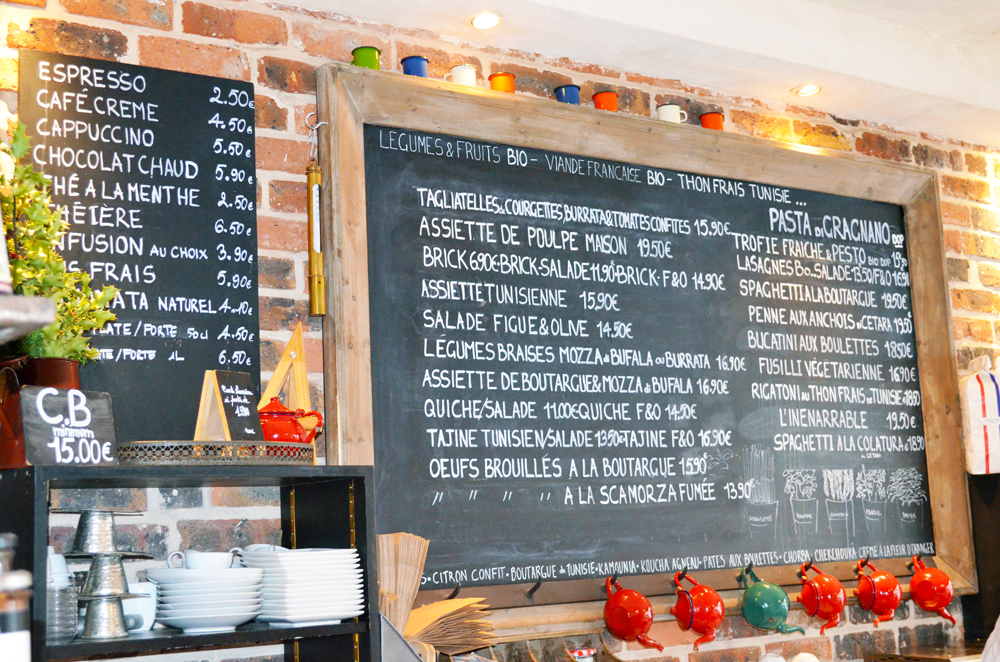 ESPRESSO 2.50€
CAFÉ CREME 4.50€
CAPPUCCINO 5.50€
CHOCOLAT CHAUD 5.90€
THÉ A LA MENTHE 2.50€
THÉIÈRE 6.50€
INFUSION AU CHOIX 3.90€
FRAIS 5.90€
NATUREL 4.10€
PLATE/FORTE 50cl 4.50€
PLATE/FORTE 1L 6.50€
C.B
minimum
15.00€
LÉGUMES & FRUITS BIO - VIANDE FRANCAISE BIO - THON FRAIS TUNISIE ...
TAGLIATELLES & COURGETTES, BURRATA & TOMATES CONFITES 15.90€
ASSIETTE DE POULPE MAISON 19.50€
BRICK 6.90€ - BRICK-SALADE 11.90€ BRICK-F&O 14.90€
ASSIETTE TUNISIENNE 15.90€
SALADE FIGUE & OLIVE 14.50€
LÉGUMES BRAISES MOZZA di BUFALA ou BURRATA 16.90€
ASSIETTE DE BOUTARGUE & MOZZA di BUFALA 16.90€
QUICHE/SALADE 11.00€ QUICHE F&O 14.50€
TAJINE TUNISIEN/SALADE 13.90€ TAJINE F&O 16.90€
OEUFS BROUILLÉS A LA BOUTARGUE 15.90
" " " " A LA SCAMORZA FUMÉE 13.90€
PASTA di GRAGNANO DOP
TROFIE FRAICHE & PESTO BIO DOP
LASAGNES BIO SALADE 13.50/F&O 16.90
SPAGHETTI A LA BOUTARGUE 19.50€
PENNE AUX ANCHOIS di CETARA 19.50
BUCATINI AUX BOULETTES 18.50€
FUSILLI VÉGETARIENNE 16.90€
RIGATONI au THON FRAIS de TUNISIE 18.50
L'INENARRABLE 19.50€
SPAGHETTI A LA COLATURA di 18.90
CETARA
S - CITRON CONFIT - BOUTARGUE de TUNISIE - KAMOUNIA - KOUCHA AGNEAU - PATES AUX BOULETTES - CHORBA CHERCHOUKA CREME A LA FLEUR D'ORANGER